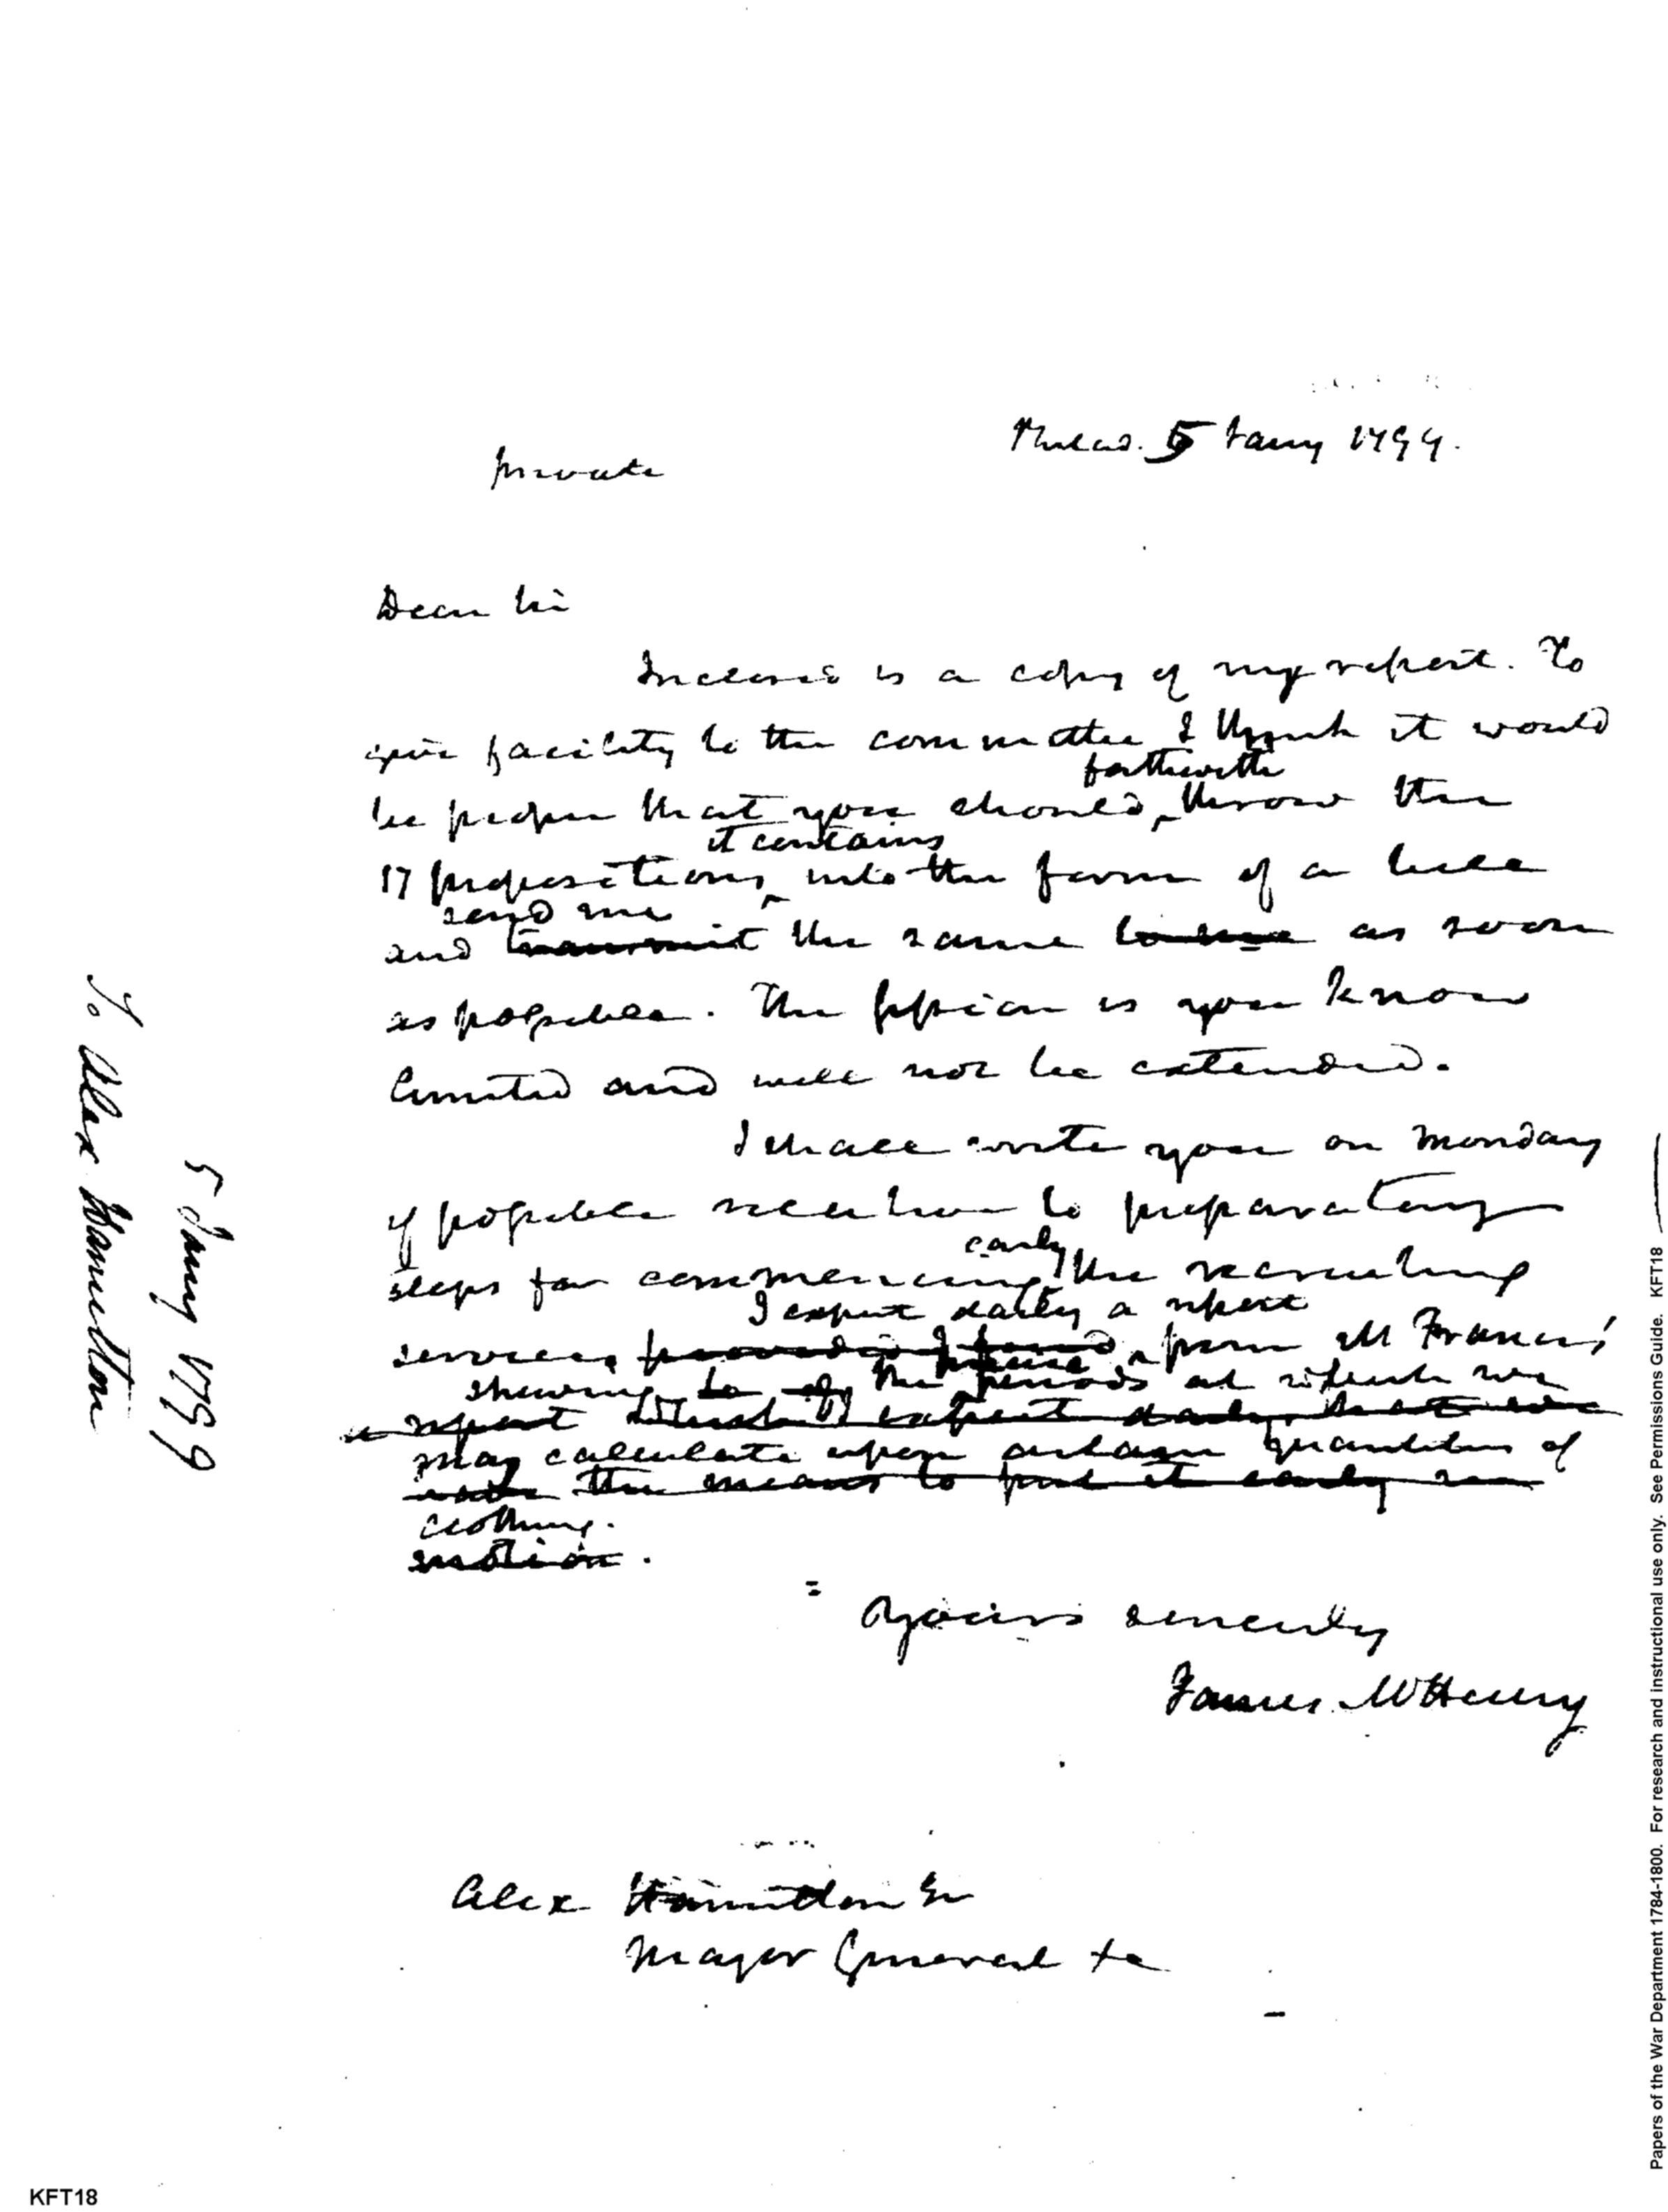 Philad. 5 Jany 1799.
private
Dear Sir
Inclosed is a copy of my report. To
give facility to the committee I think it would
forthwith
be proper that you should throw the
it contains
17 propositions into the form of a bill
send me
and transmit the same to me as soon
as possible. The session is you know
limited and will not be extended.
I shall write you on Monday
if possible relative to preparatory
early
steps for commencing the recruiting
I expect daily a report
service, provided I found from Mr Francis'
shewing to of the periods at which we
a report which I expect daily, that we
may calculate upon certain quantities of
have the means to put it early in
clothing.
motion.
Yours sincerely
James McHenry
Alex Hamilton Esr
Major General &c
To Alex Hamilton
5 Jany 1799
Papers of the War Department 1784-1800. For research and instructional use only. See Permissions Guide. KFT18
KFT18